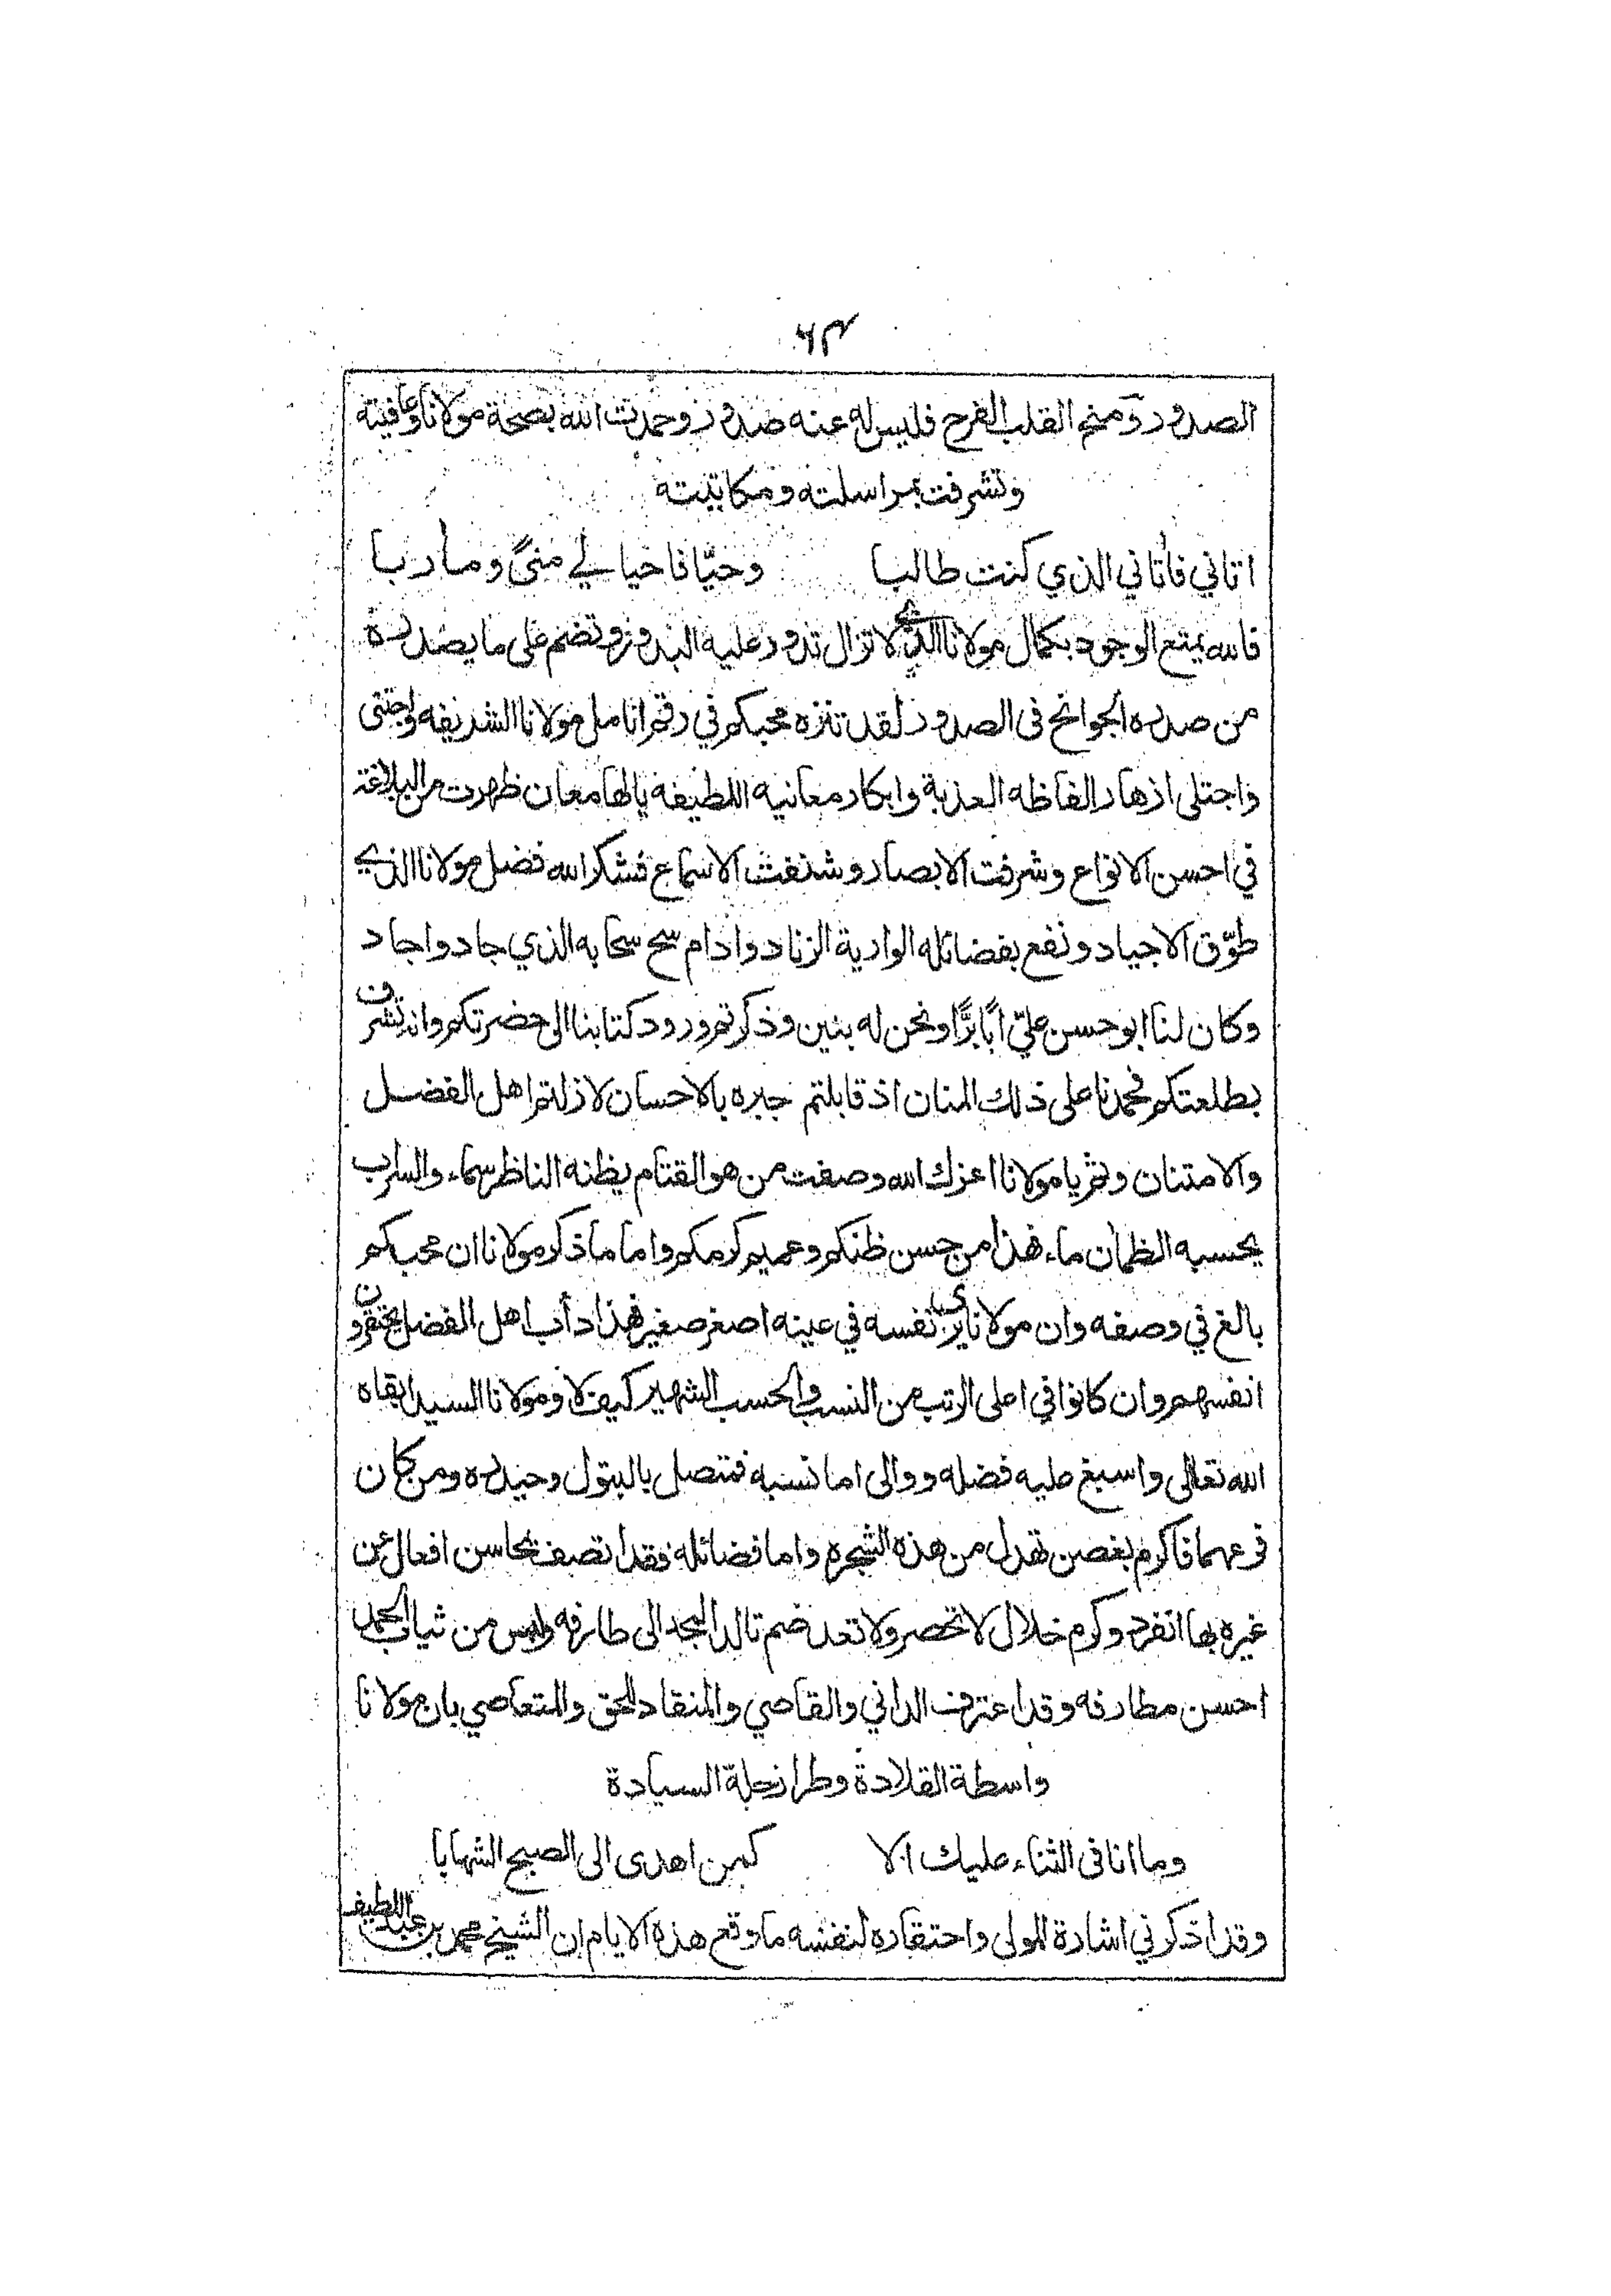 ٦٣
الصدور ومنح القلب الفرح فليس له عنه صدور وحمدت الله بصحة مولانا وعافيته
وتشرفت بمراسلته ومكاتبته
اتاني فأتاني الذي كنت طالبا وحيّا فاحيا لي منىً ومأربا
فالله يمتع الوجود بكمال مولانا الذي لا تزال تدور عليه البدور وتضم على ما يصدره
من صدره الجوانح في الصدور لقد تنزه محبكم في رقم انامل مولانا الشريفه واجتنى
واجتلى ازهار الفاظه العذبة وابكار معانيه اللطيفه يالها معان ظهرت من البلاغة
في احسن الانواع وشرفت الابصار وشنفت الاسماع فشكر الله فضل مولانا الذي
طوّق الاجياد ونفع بفضائله الوارية الزناد وادام سح سحابه الذي جاد واجاد
وكان لنا ابو حسن عليّ ابًا برًّا ونحن له بنين وذكرتم ورود كتابنا الى حضرتكم وانه تشرف
بطلعتكم فحمدنا على ذلك المنان اذ قابلتم جبره بالاحسان لازلتم اهل الفضل
والامتنان وثم يا مولانا اعزك الله وصفت من هو القتام يظنه الناظر سماء والسراب
يحسبه الظمآن ماء هذا من حسن ظنكم وعميم كرمكم واما ما ذكر مولانا ان محبكم
بالغ في وصفه وان مولانا يرى نفسه في عينه اصغر صغير فهذا دأب اهل الفضل يحتقرون
انفسهم وان كانوا في اعلى الرتب من النسب والحسب الشهير كيف لا ومولانا السيد ابقاه
الله تعالى واسبغ عليه فضله ووالى اما نسبه فمتصل بالبتول وحيدره ومن كان
فرعهما فاكرم بغصن تهدل من هذه الشجره واما فضائله فقد اتصف بمحاسن افعال عن
غيره بها انفرد وكرم خلال لا تحصر ولا تعد ضم تالد المجد الى طارفه ولبس من ثياب الحمد
احسن مطارفه وقد اعترف الداني والقاصي والمنقاد للحق والمتعاصي بان مولانا
واسطة القلادة وطراز حلة السيادة
وما انا في الثناء عليك الا كمن اهدى الى الصبح الشهابا
وقد اذكرتي اشارة المولى واحتقاره لنفسه ما وقع هذه الايام ان الشيخ محمد بن عبد اللطيف